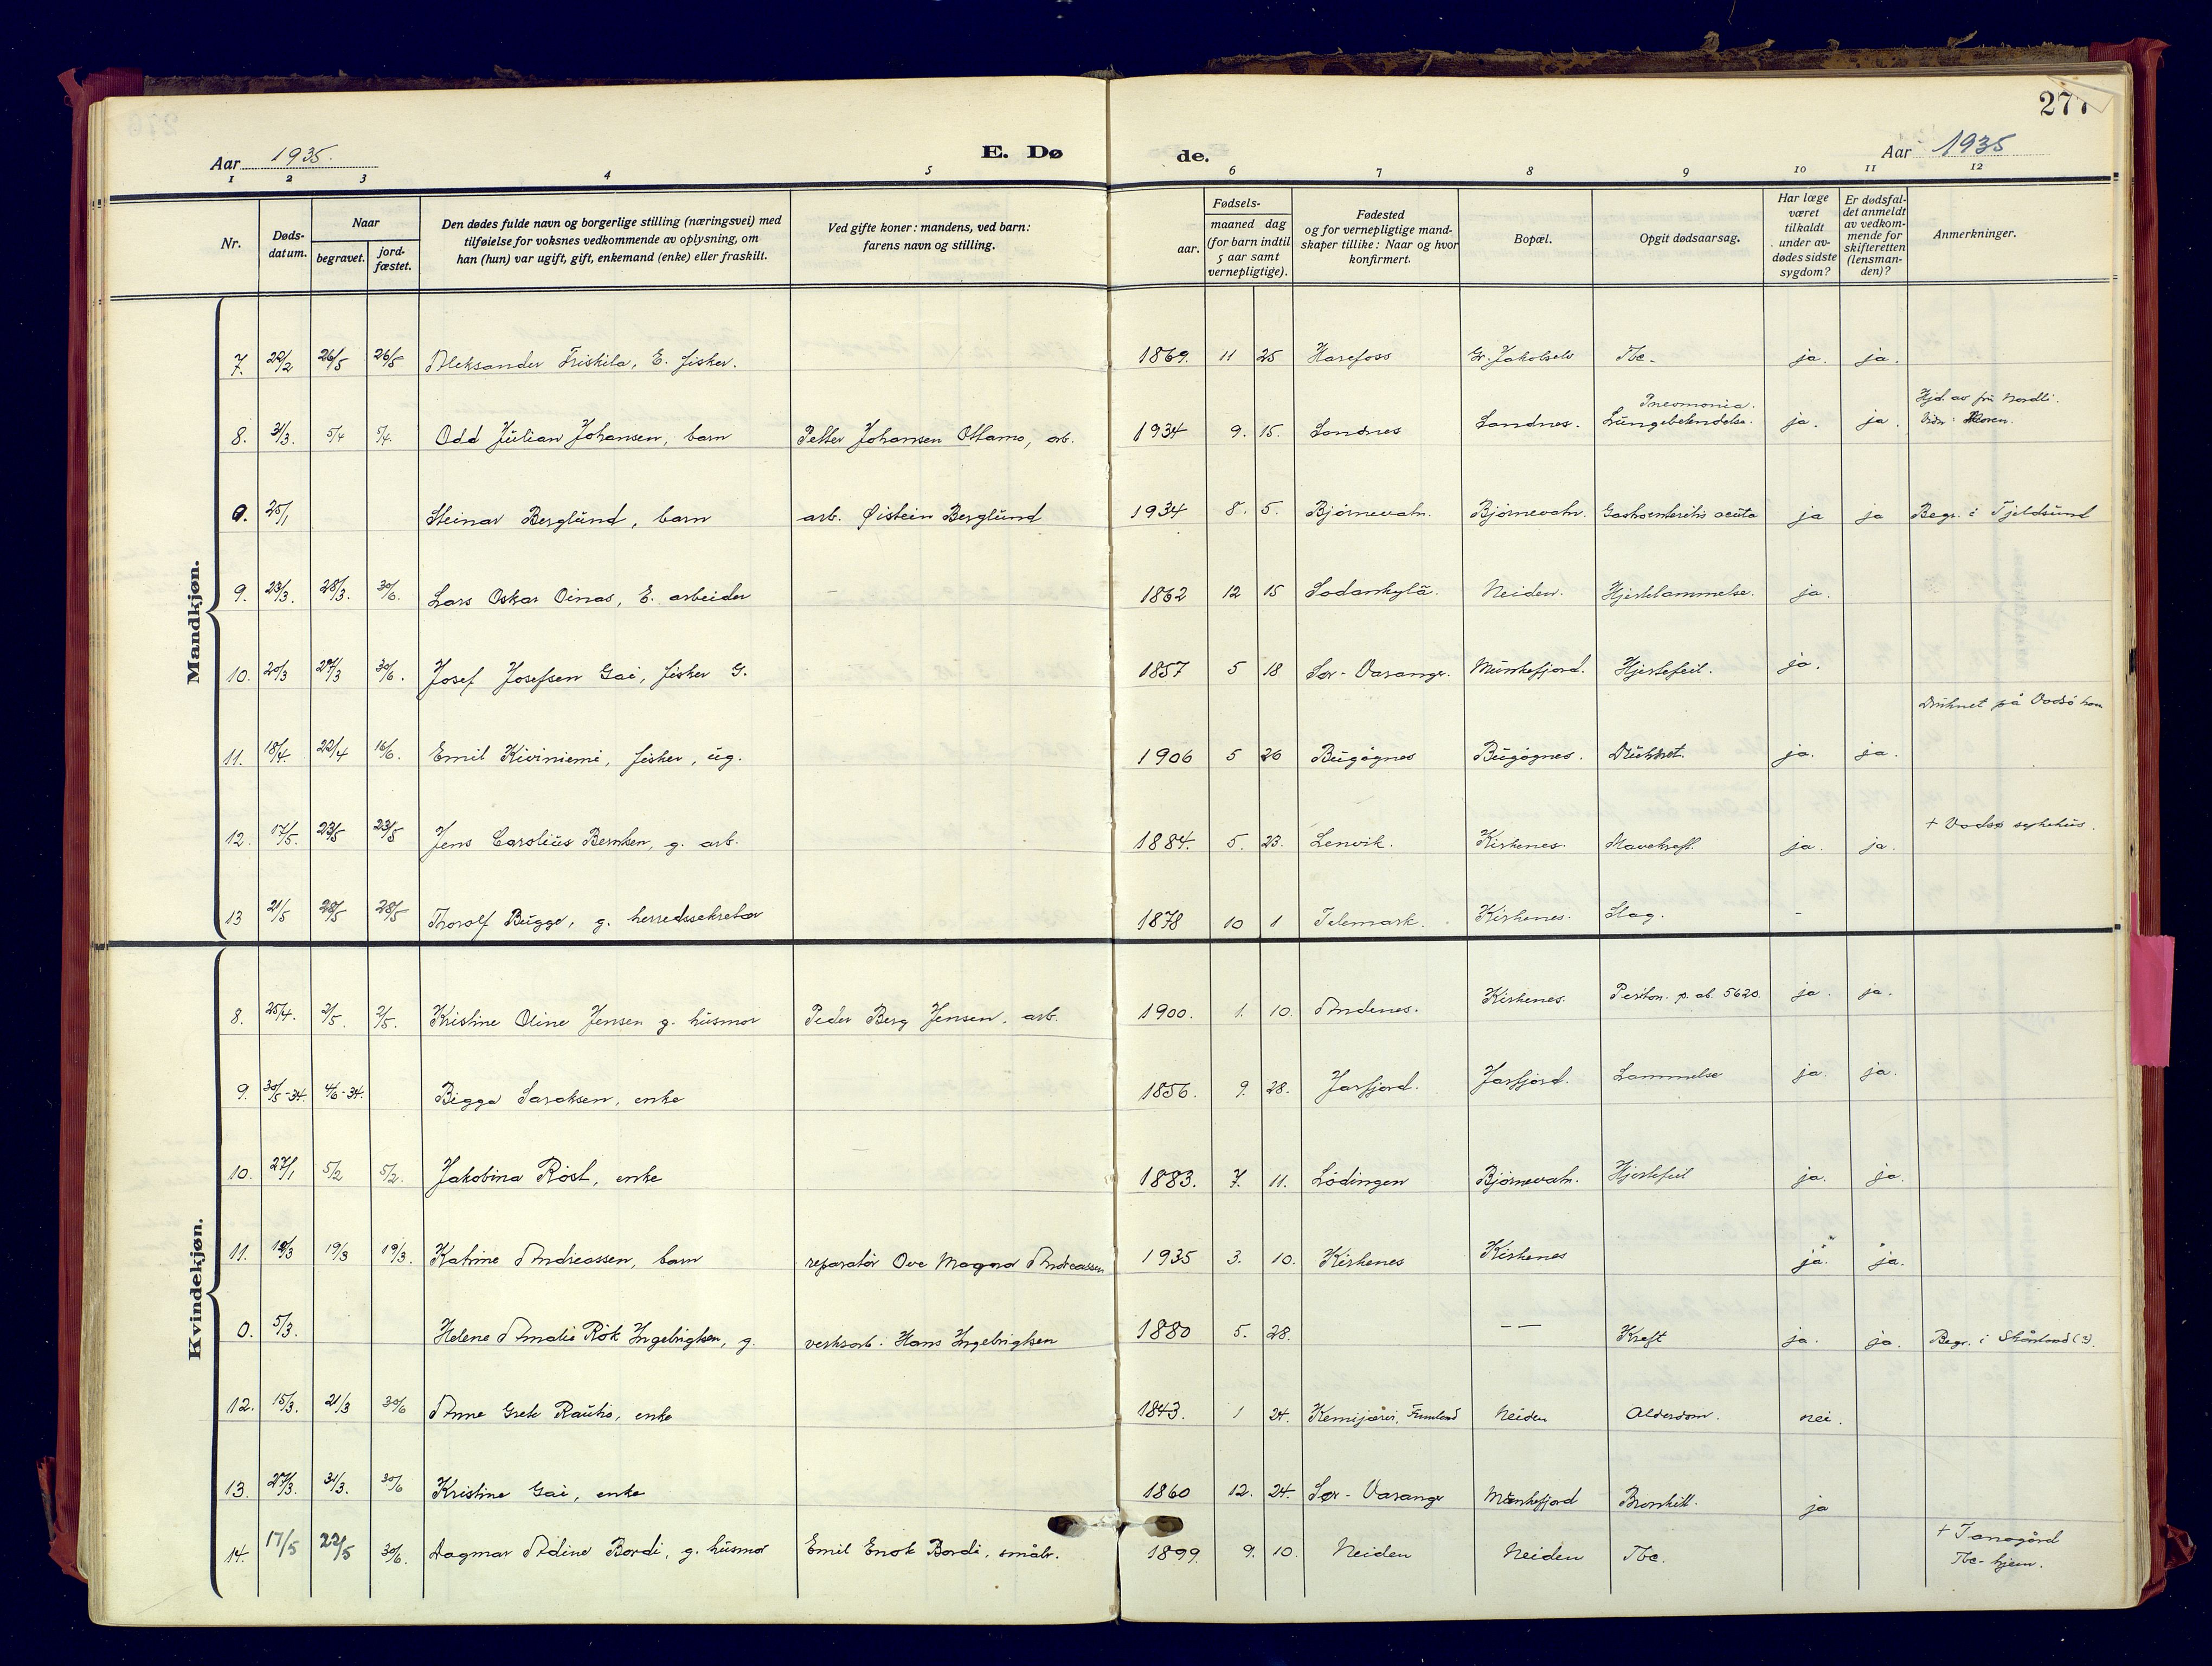 277
Aar 1935.
E. Dø
de.
Aar 1935
1 2 3 4 5 6 7 8 9 10 11 12
Nr.
Døds-
datum.
Naar
begravet.
jord-
fæstet.
Den dødes fulde navn og borgerlige stilling (næringsvei) med
tilføielse for voksnes vedkommende av oplysning, om
han (hun) var ugift, gift, enkemand (enke) eller fraskilt.
Ved gifte koner: mandens, ved barn:
farens navn og stilling.
Fødsels-
aar.
maaned dag
(for barn indtil
5 aar samt
vernepligtige).
Fødested
og for vernepligtige mand-
skaper tillike: Naar og hvor
konfirmert.
Bopæl.
Opgit dødsaarsag.
Har læge
været
tilkaldt
under av-
dødes sidste
sygdom?
Er dødsfal-
det anmeldt
av vedkom-
mende for
skifteretten
(lensman-
den)?
Anmerkninger.
Mandkjøn.
7. 22/2 26/5 26/5 Aleksander Friskila, E. fisker. 1869. 11 25 Harefoss Gr. Jakobselv Tbc. ja. ja.
8. 31/3. 5/4 5/4. Odd Julian Johansen, barn Petter Johansen Ottamo, arb. 1934 9. 15. Sandnes Sandnes. Pneomonia. Lungebetendelse. ja. ja. Hjd. av frk Nordli.
0. 25/1 Steinar Berglund, barn arb. Øistein Berglund 1934 8. 5. Bjørnevatn. Bjørnevatn. Gastroenteritis acuta ja ja Begr. i Tjeldsund
9. 23/3. 28/3. 30/6. Lars Oskar Oinas, E. arbeider 1862 12 15 Sodankylä. Neiden. Hjertelammelse. ja.
10. 20/3 27/3 30/6. Josef Josefsen Gai, fisker G. 1857 5 18 Sør-Varanger. Munkefjord. Hjertefeil. ja.
Druknet på Vadsø havn
11. 18/4. 22/4 16/6. Emil Kiviniemi, fisker, ug. 1906 5 26 Bugøynes Bugøynes. Druknet. ja. ja.
12. 17/5. 23/5 23/5 Jens Carolius Berntsen, g. arb. 1884. 5. 23. Lenvik. Kirkenes. Mavekreft. ja. ja. + Vadsø sykehus.
13 21/5 28/5 28/5 Thorolf Bugge, g. herredssekretær 1878 10 1 Telemark. Kirkenes. Slag. -
Kvindekjøn.
8. 25/4. 2/5. 2/5. Kristine Oline Jensen g. husmor Peder Berg Jensen, arb. 1900. 1. 10. Andenes. Kirkenes. Periton. p. ab. 5620. ja. ja.
9. 30/5-34. 4/6-34. Bigga Saraksen, enke 1856. 9. 28. Jarfjord. Jarfjord. Lammelse ja. ja.
10. 27/1 5/2 5/2. Jakobina Röst, enke 1883. 7. 11. Lödingen Bjørnevatn. Hjertefeil ja. ja.
11. 18/3 19/3 19/3. Katrine Andreassen, barn reparatör Ove Magnor Andreassen 1935 3. 10. Kirkenes Kirkenes ja. ja.
0. 5/3. Helene Amalie Rök Ingebrigtsen, g. verksarb. Hans Ingebrigtsen 1880 5. 28. - - Kreft ja. ja. Begr. i Skånland (?).
12. 15/3. 21/3 30/6 Anne Grete Rautio, enke 1843. 1 24. Kemijärvi, Finnland Neiden Alderdom. nei.
13. 27/3. 31/3. 30/6 Kristine Gai, enke 1860 12. 24. Sør-Varanger Munkefjord Bronkitt. ja
14. 17/5 22/5 30/6. Dagmar Adine Bordi, g. husmor Emil Enok Bordi, småbr. 1899. 9. 10. Neiden Neiden Tbc. + Tanagård
Tbc-hjem.